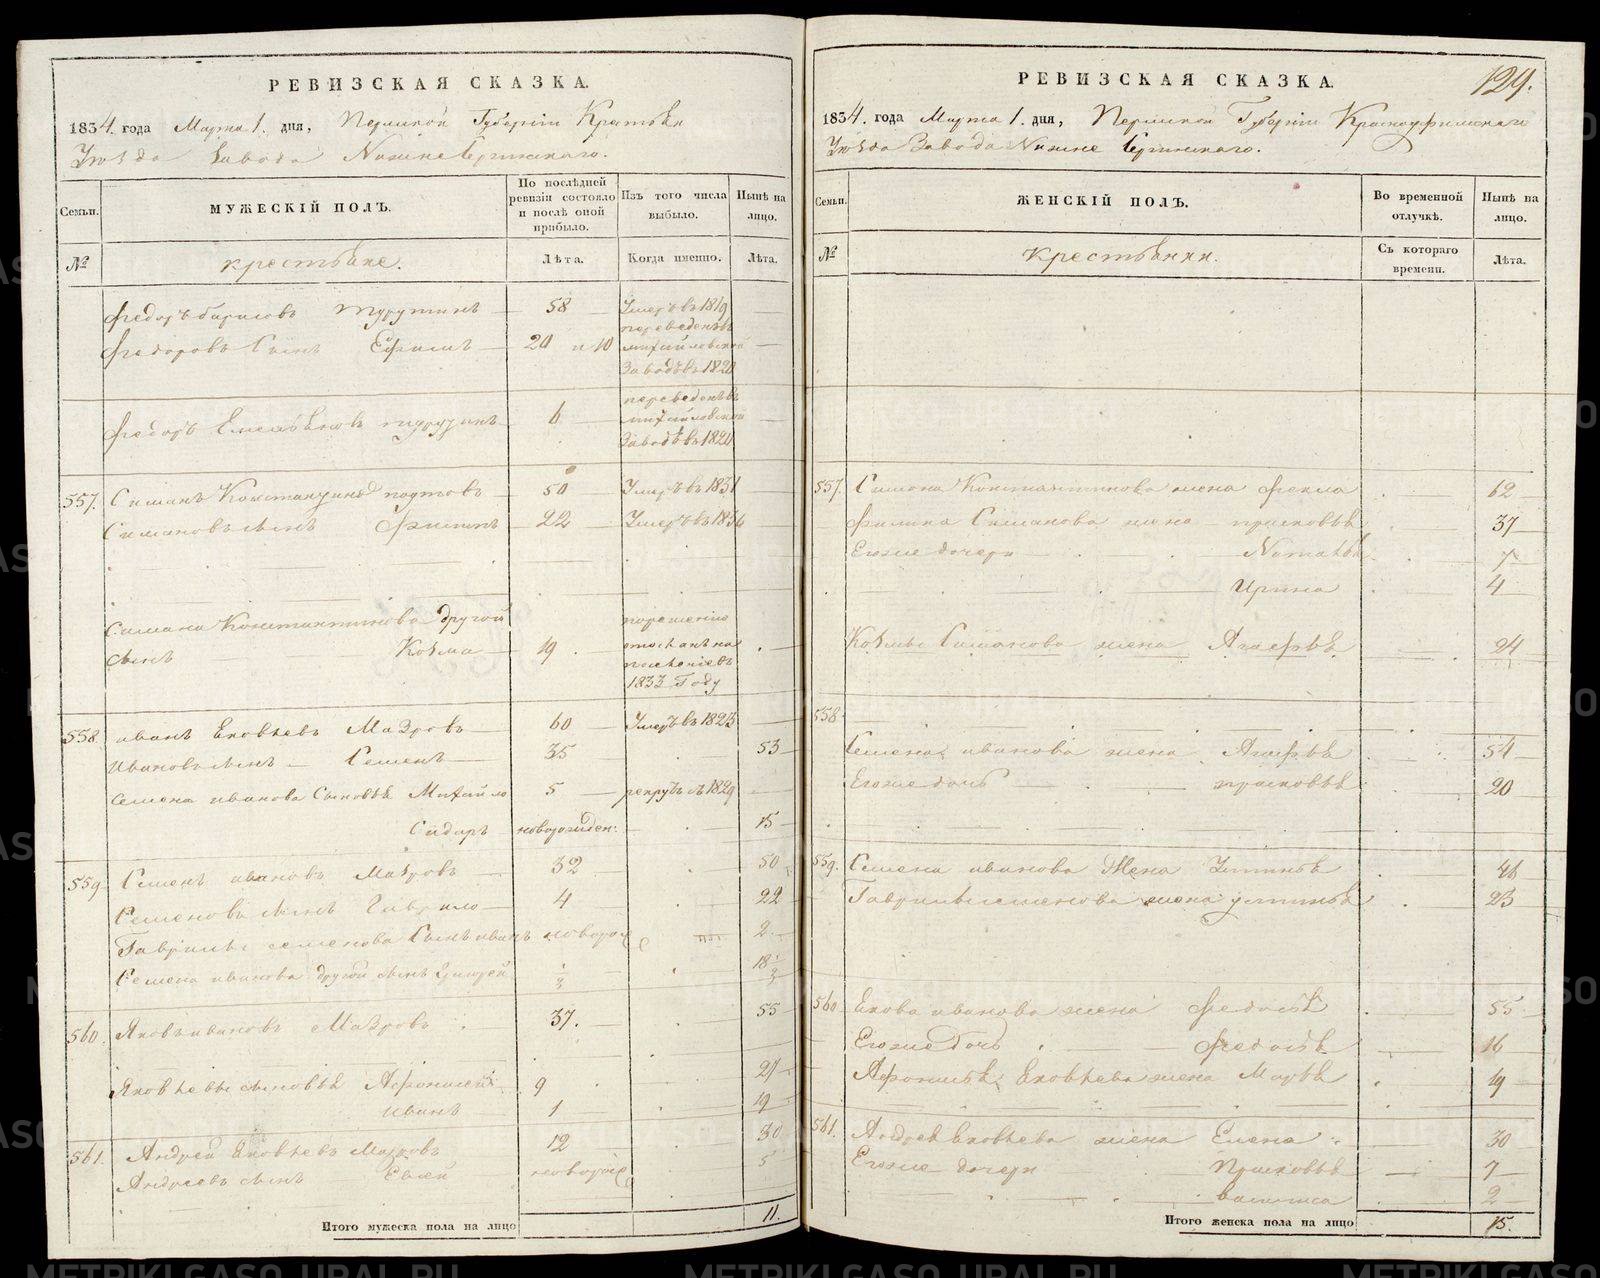 РЕВИЗСКАЯ СКАЗКА.
1834. года Марта 1. дня, Пермской Губернiи
Уѣзда Завода Нижне Сергинскаго.
Семьи. МУЖЕСКІЙ ПОЛЪ. По послѣдней ревизіи состояло и послѣ оной прибыло. Изъ того числа выбыло. Нынѣ на лицо.
№ крестьяне. Лѣта. Когда именно. Лѣта.
Федоръ 58 Умеръ въ 1819
Федоровъ Сынъ Ефимъ 20 и 10 переведенъ въ
михайловской
Заводъ въ 1820
Федоръ 6 переведенъ въ
михайловской
Заводъ въ 1820
557. 50 Умеръ въ 1831
Симановъ сынъ Филипъ 22 Умеръ въ 1834
Симана Константинова другой
сынъ Козма 19 порешению
на
поселение въ
1833 Году
558. иванъ Яковлевъ Мазровъ 60 Умеръ въ 1825
Ивановъ сынъ Семенъ 35 53
Семена иванова Сыновья Михайло 5 рекрутъ въ 1829
Сидаръ новорожден: 15
559 Семенъ ивановъ Мазровъ 32 50
Семеновъ сынъ Гаврило 4 22
Гаврилы семенова Сынъ иванъ новорож 2
Семена иванова другой сынъ ½ 18½
560. Яковъ ивановъ Мазровъ 37. 55
Яковлевы сыновья Афонасей 9 27
Иванъ 1 19
561. Андрей Яковлевъ Мазровъ 12 30
Андреевъ сынъ новорож 5
Итого мужеска пола на лицо 11.
129.
РЕВИЗСКАЯ СКАЗКА.
1834. года Марта 1. дня, Пермской Губернiи Красноуфимскаго
Уѣзда Завода Нижне Сергинскаго.
Семьи. ЖЕНСКІЙ ПОЛЪ. Во временной отлучкѣ. Нынѣ на лицо.
№ крестьянки. Съ котораго времени. Лѣта.
557. Симона Константинова жена Фекла 62
Филипа Симанова жена прасковья 37
Егоже дочери Наталья 7
Ирина 4
Козмы Симанова жена Агафья 24
558
Семена иванова жена Агафья 54
Егоже дочь прасковья 20
559. Семена иванова Жена Устинья 48
Гаврилы семенова жена устинья 23
560 Якова иванова жена Федосья 55
Егоже дочь Федосья 16
Афонасья Яковлева жена Марья 19
561. Андрея Яковлева жена Елена 30
Егоже дочери Прасковья 7
василиса 2
Итого женска пола на лицо 15.
METRIKI.GASO-URAL.RU